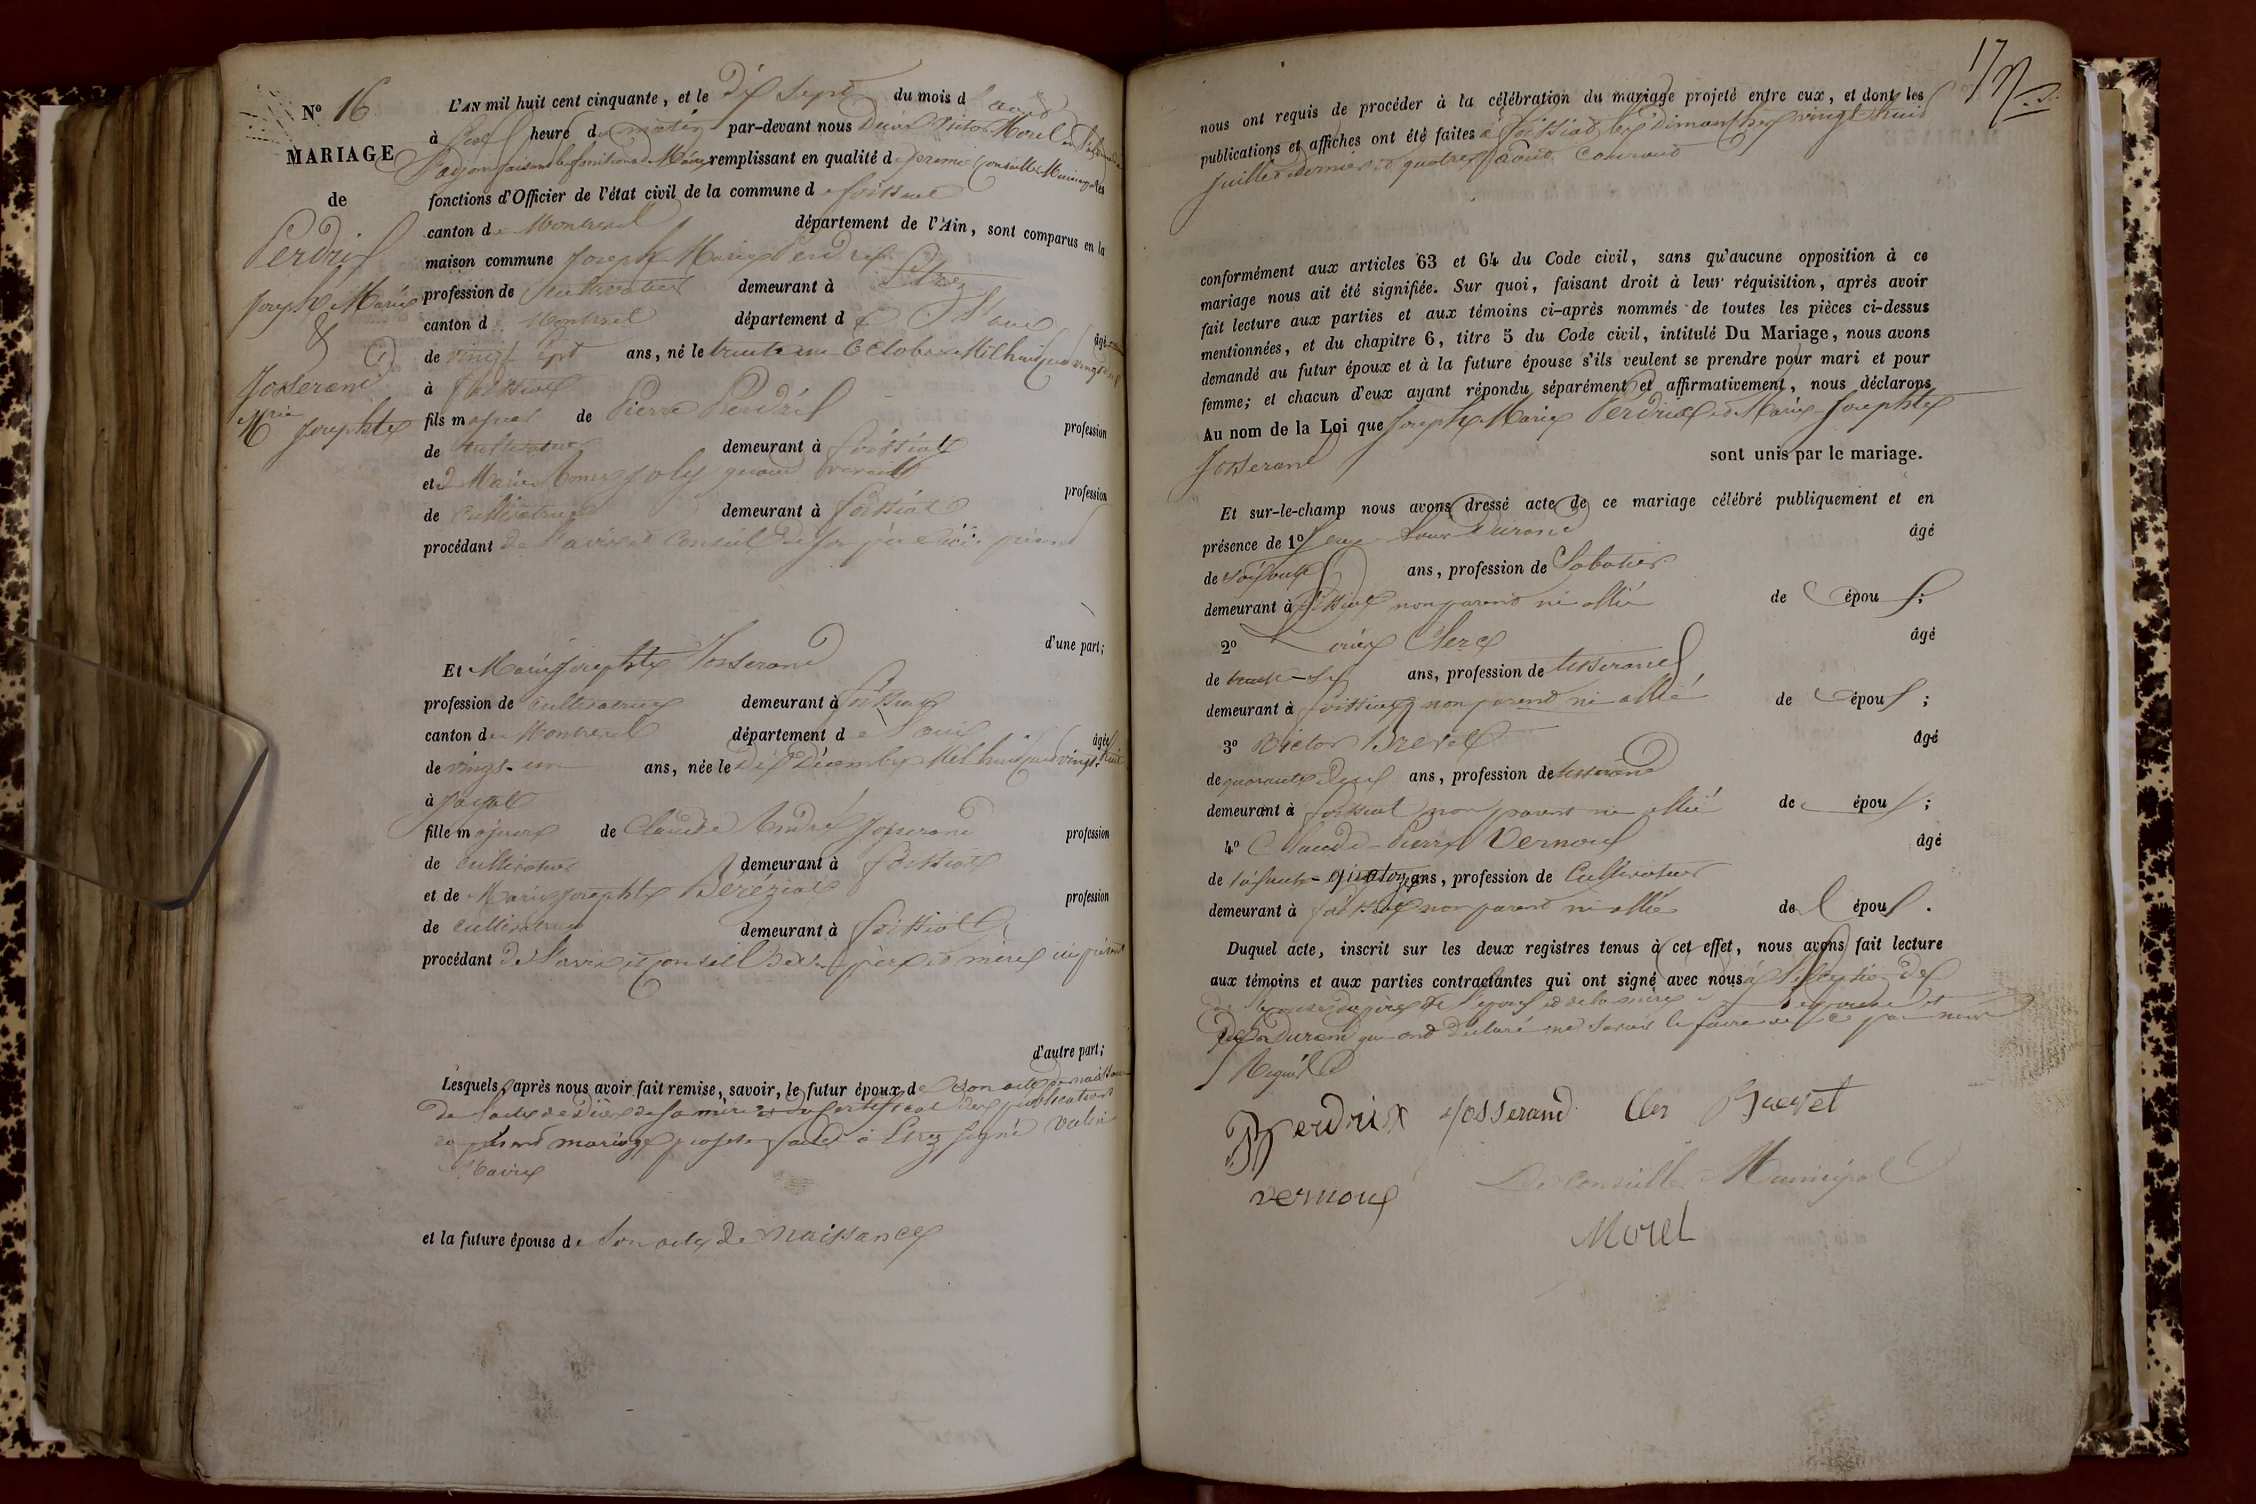 N.º 16
MARIAGE
de
Perdrix
Joseph Marie
&
Josserand
Mrie Josephte
L'AN mil huit cent cinquante, et le dix sept du mois d'août
à heure du matin par-devant nous Victor Morel
faisant les fonctions de Maire remplissant en qualité de premier Conseiller Municipal les
fonctions d'Officier de l'état civil de la commune de foissiat
canton de Montrevel département de l'Ain, sont comparus en la
maison commune Joseph Marie Perdrix
profession de Cultivateur demeurant à Etrez
canton de Montrevel département de l'ain âgé
de vingt sept ans, né le trente un Octobre Mil huit cent vingt deux
à foissiat
fils majeur de Pierre Perdrix profession
de cultivateur demeurant à foissiat
et de Marie Joly quand vivait profession
de cultivatrice demeurant à foissiat
procédant de l'avis et conseil de son père ici présent
d'une part;
Et Marie Josephte Josserand
profession de cultivatrice demeurant à foissiat
canton de Montrevel département de l'ain âgée
de vingt-un ans, née le dix Décembre Mil huit cent vingt-huit
à
fille majeure de Claude André Josserand profession
de cultivateur demeurant à foissiat
et de Marie Josephte Béréziat profession
de cultivatrice demeurant à foissiat
procédant de l'avis et conseil de ses père et mère ici présents
d'autre part;
Lesquels, après nous avoir fait remise, savoir, le futur époux de son acte de naissance
de l'acte de décès de sa mère et du certificat des publications
du présent mariage projeté faites à Etrez signé
Maire
et la future épouse de son acte de naissance
17
nous ont requis de procéder à la célébration du mariage projeté entre eux, et dont les
publications et affiches ont été faites à foissiat les dimanches vingt huit
juillet dernier et quatre août courant
conformément aux articles 63 et 64 du Code civil, sans qu'aucune opposition à ce
mariage nous ait été signifiée. Sur quoi, faisant droit à leur réquisition, après avoir
fait lecture aux parties et aux témoins ci-après nommés de toutes les pièces ci-dessus
mentionnées, et du chapitre 6, titre 5 du Code civil, intitulé Du Mariage, nous avons
demandé au futur époux et à la future épouse s'ils veulent se prendre pour mari et pour
femme; et chacun d'eux ayant répondu séparément et affirmativement, nous déclarons
Au nom de la Loi que Joseph Marie Perdrix et Marie Josephte
Josserand sont unis par le mariage.
Et sur-le-champ nous avons dressé acte de ce mariage célébré publiquement et en
présence de 1º Durand âgé
de soixante ans, profession de Sabotier
demeurant à foissiat non parent ni allié de époux;
2º Clerc âgé
de trente-six ans, profession de tisserand
demeurant à foissiat non parent ni allié de époux;
3º Victor Brevet âgé
de quarante deux ans, profession de tisserand
demeurant à foissiat non parent ni allié de époux;
4º Claude-Pierre Vernoux âgé
de soixante-quatorze ans, profession de Cultivateur
demeurant à foissiat non parent ni allié de l'époux.
Duquel acte, inscrit sur les deux registres tenus à cet effet, nous avons fait lecture
aux témoins et aux parties contractantes qui ont signé avec nous à l'exception de
de l'épouse du père de l'époux et de la mère de l'épouse et
de Durand qui ont déclaré ne savoir le faire de ce par nous
Requis
Perdrix Josserand Clerc Brevet
Vernoux
Le Conseiller Municipal
Morel